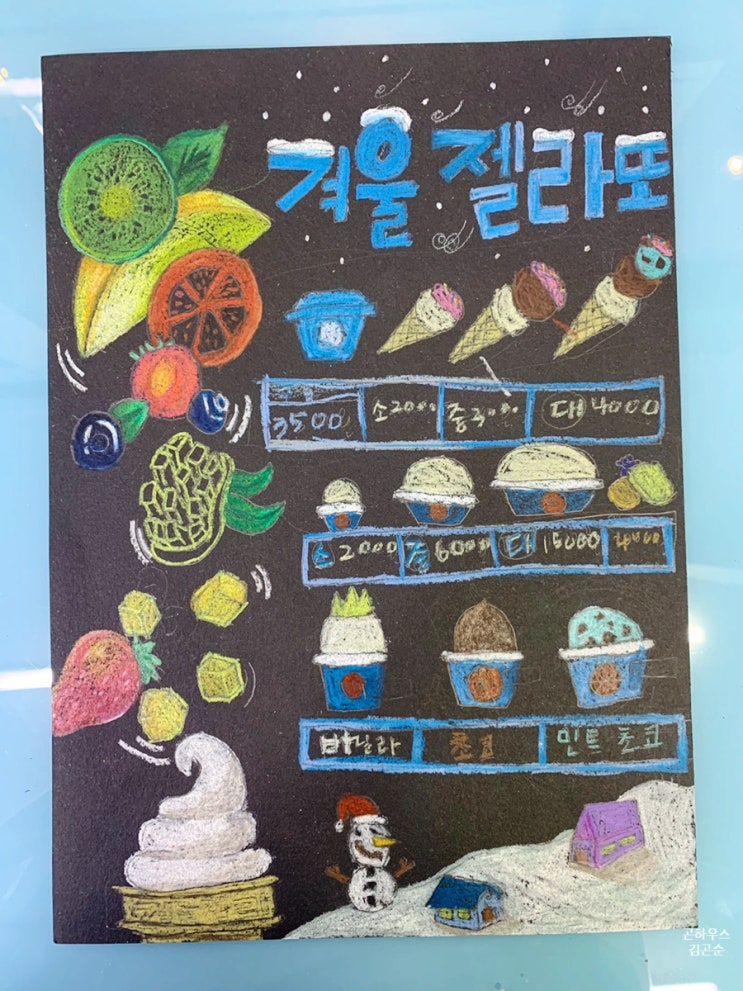 겨울 젤라또
3500 소2000 중3000 대4000
소2000 중6000 대15000
바닐라 초코 민트 초코
곤하우스
김곤순